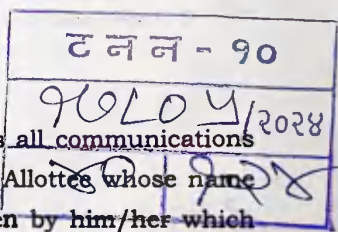 ट न न - १०
१७८०५/२०२४
s all communications
Allottee whose name
en by him/her which